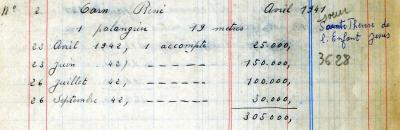 N° 2 Carn René Avril 1941
1 palanquin 19 mètres
23 Avril 1942, 1 accompte 25.000,
23 Juin 42, 150.000,
26 Juillet 42, 100.000,
26 Septembre 42, 30.000,
305000,
pour
Sainte Thérèse de
l'Enfant Jesus
3628